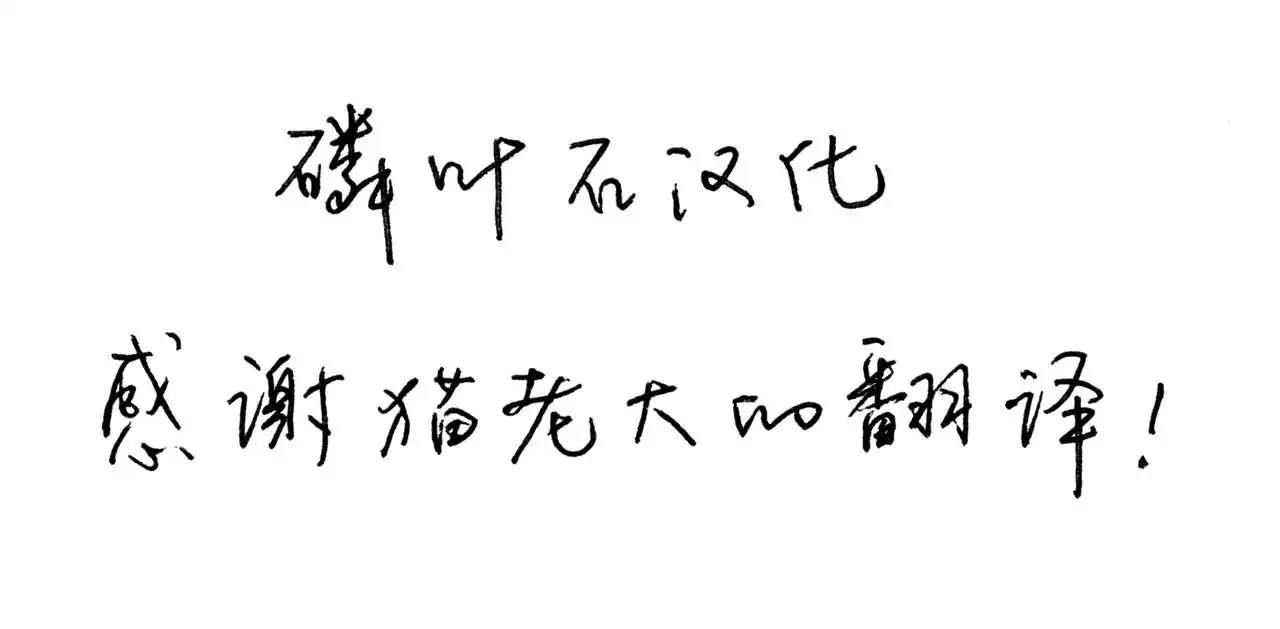 磷叶石汉化
感谢猫老大的翻译！